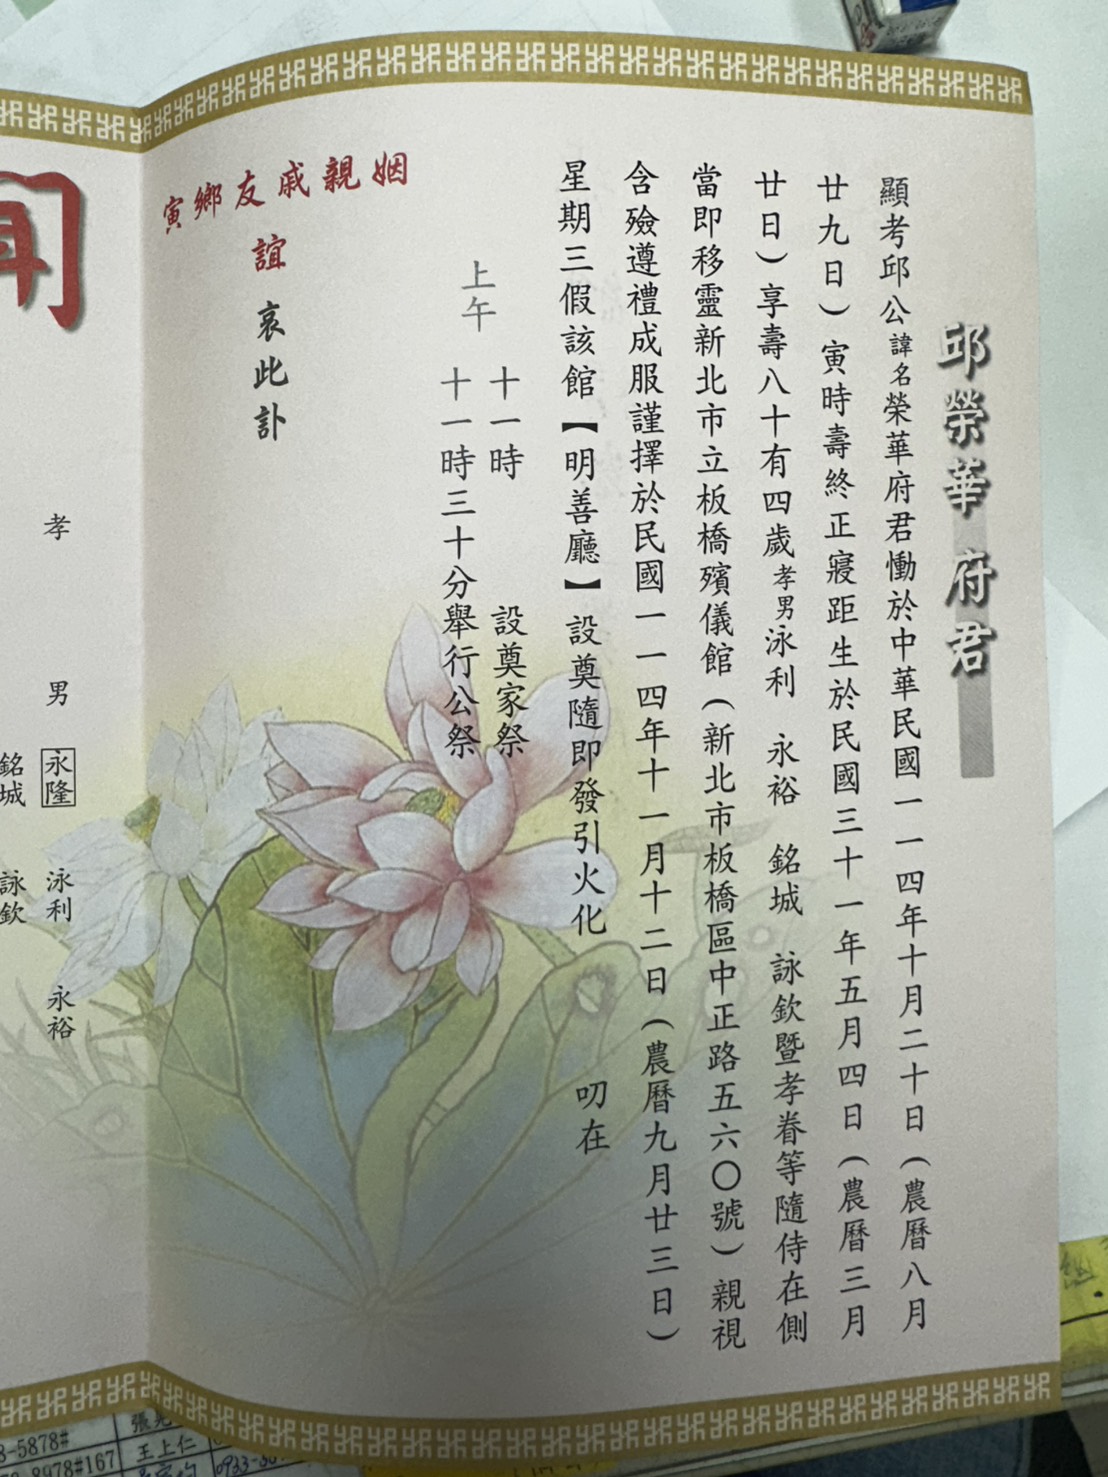 邱榮華 府君
顯考邱公諱名榮華府君慟於中華民國一一四年十月二十日（農曆八月
廿九日）寅時壽終正寢距生於民國三十一年五月四日（農曆三月
廿日）享壽八十有四歲孝男泳利 永裕 銘城 詠欽暨孝眷等隨侍在側
當即移靈新北市立板橋殯儀館（新北市板橋區中正路五六〇號）親視
含殮遵禮成服謹擇於民國一一四年十一月十二日（農曆九月廿三日）
星期三假該館【明善廳】設奠隨即發引火化 叨在
上午
十一時 設奠家祭
十一時三十分舉行公祭
姻親戚友鄉寅
誼 哀此訃
聞
孝 男 永隆 泳利 永裕
銘城 詠欽
3-5878#
8978#167
王上仁
0933-